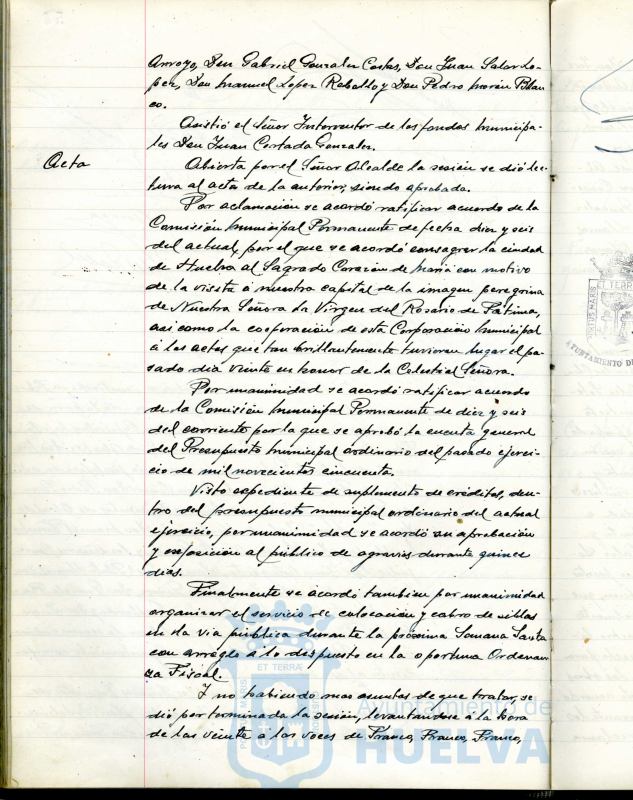 Arroyo, Don Gabriel Gonzalez Costas, Don Juan Salas Lo-
pez, Don Manuel Lopez Rebollo y Don Pedro Morán Blan
co.
Asistió el Señor Interventor de los fondos Municipa-
les Don Juan Cortada Gonzalez.
Acta
Abierta por el Señor Alcalde la sesión se dió lec-
tura al acta de la anterior, siendo aprobada.
Por aclamación se acordó ratificar acuerdo de la
Comisión Municipal Permanente de fecha diez y seis
del actual, por el que se acordó consagrar la ciudad
de Huelva al Sagrado Corazón de María con motivo
de la visita á nuestra capital de la imagen peregrina
de Nuestra Señora la Virgen del Rosario de Fátima,
asi como la cooperación de esta Corporación Municipal
á los actos que tan brillantemente tuvieron lugar el pa-
sado dia veinte en honor de la Celestial Señora.
Por unanimidad se acordó ratificar acuerdo
de la Comisión Municipal Permanente de diez y seis
del corriente por la que se aprobó la cuenta general
del Presupuesto Municipal ordinario del pasado ejerci-
cio de mil novecientos cincuenta.
Visto expediente de suplemento de créditos, den-
tro del presupuesto municipal ordinario del actual
ejercicio, por unanimidad se acordó su aprobación
y exposición al público de agravios durante quince
dias.
Finalmente se acordó tambien por unanimidad
organizar el servicio de colocación y cobro de sillas
en la via pública durante la próxima Semana Santa
con arreglo á lo dispuesto en la oportuna Ordenan
za Fiscal.
Y no habiendo mas asuntos de que tratar, se
dió por terminada la sesión, levantandose á la hora
de las veinte á las voces de Franco, Franco, Franco,
ET TERRÆ
Ayuntamiento de
HUELVA
PORTUS MARIS
ET TERRÆ
AYUNTAMIENTO DE